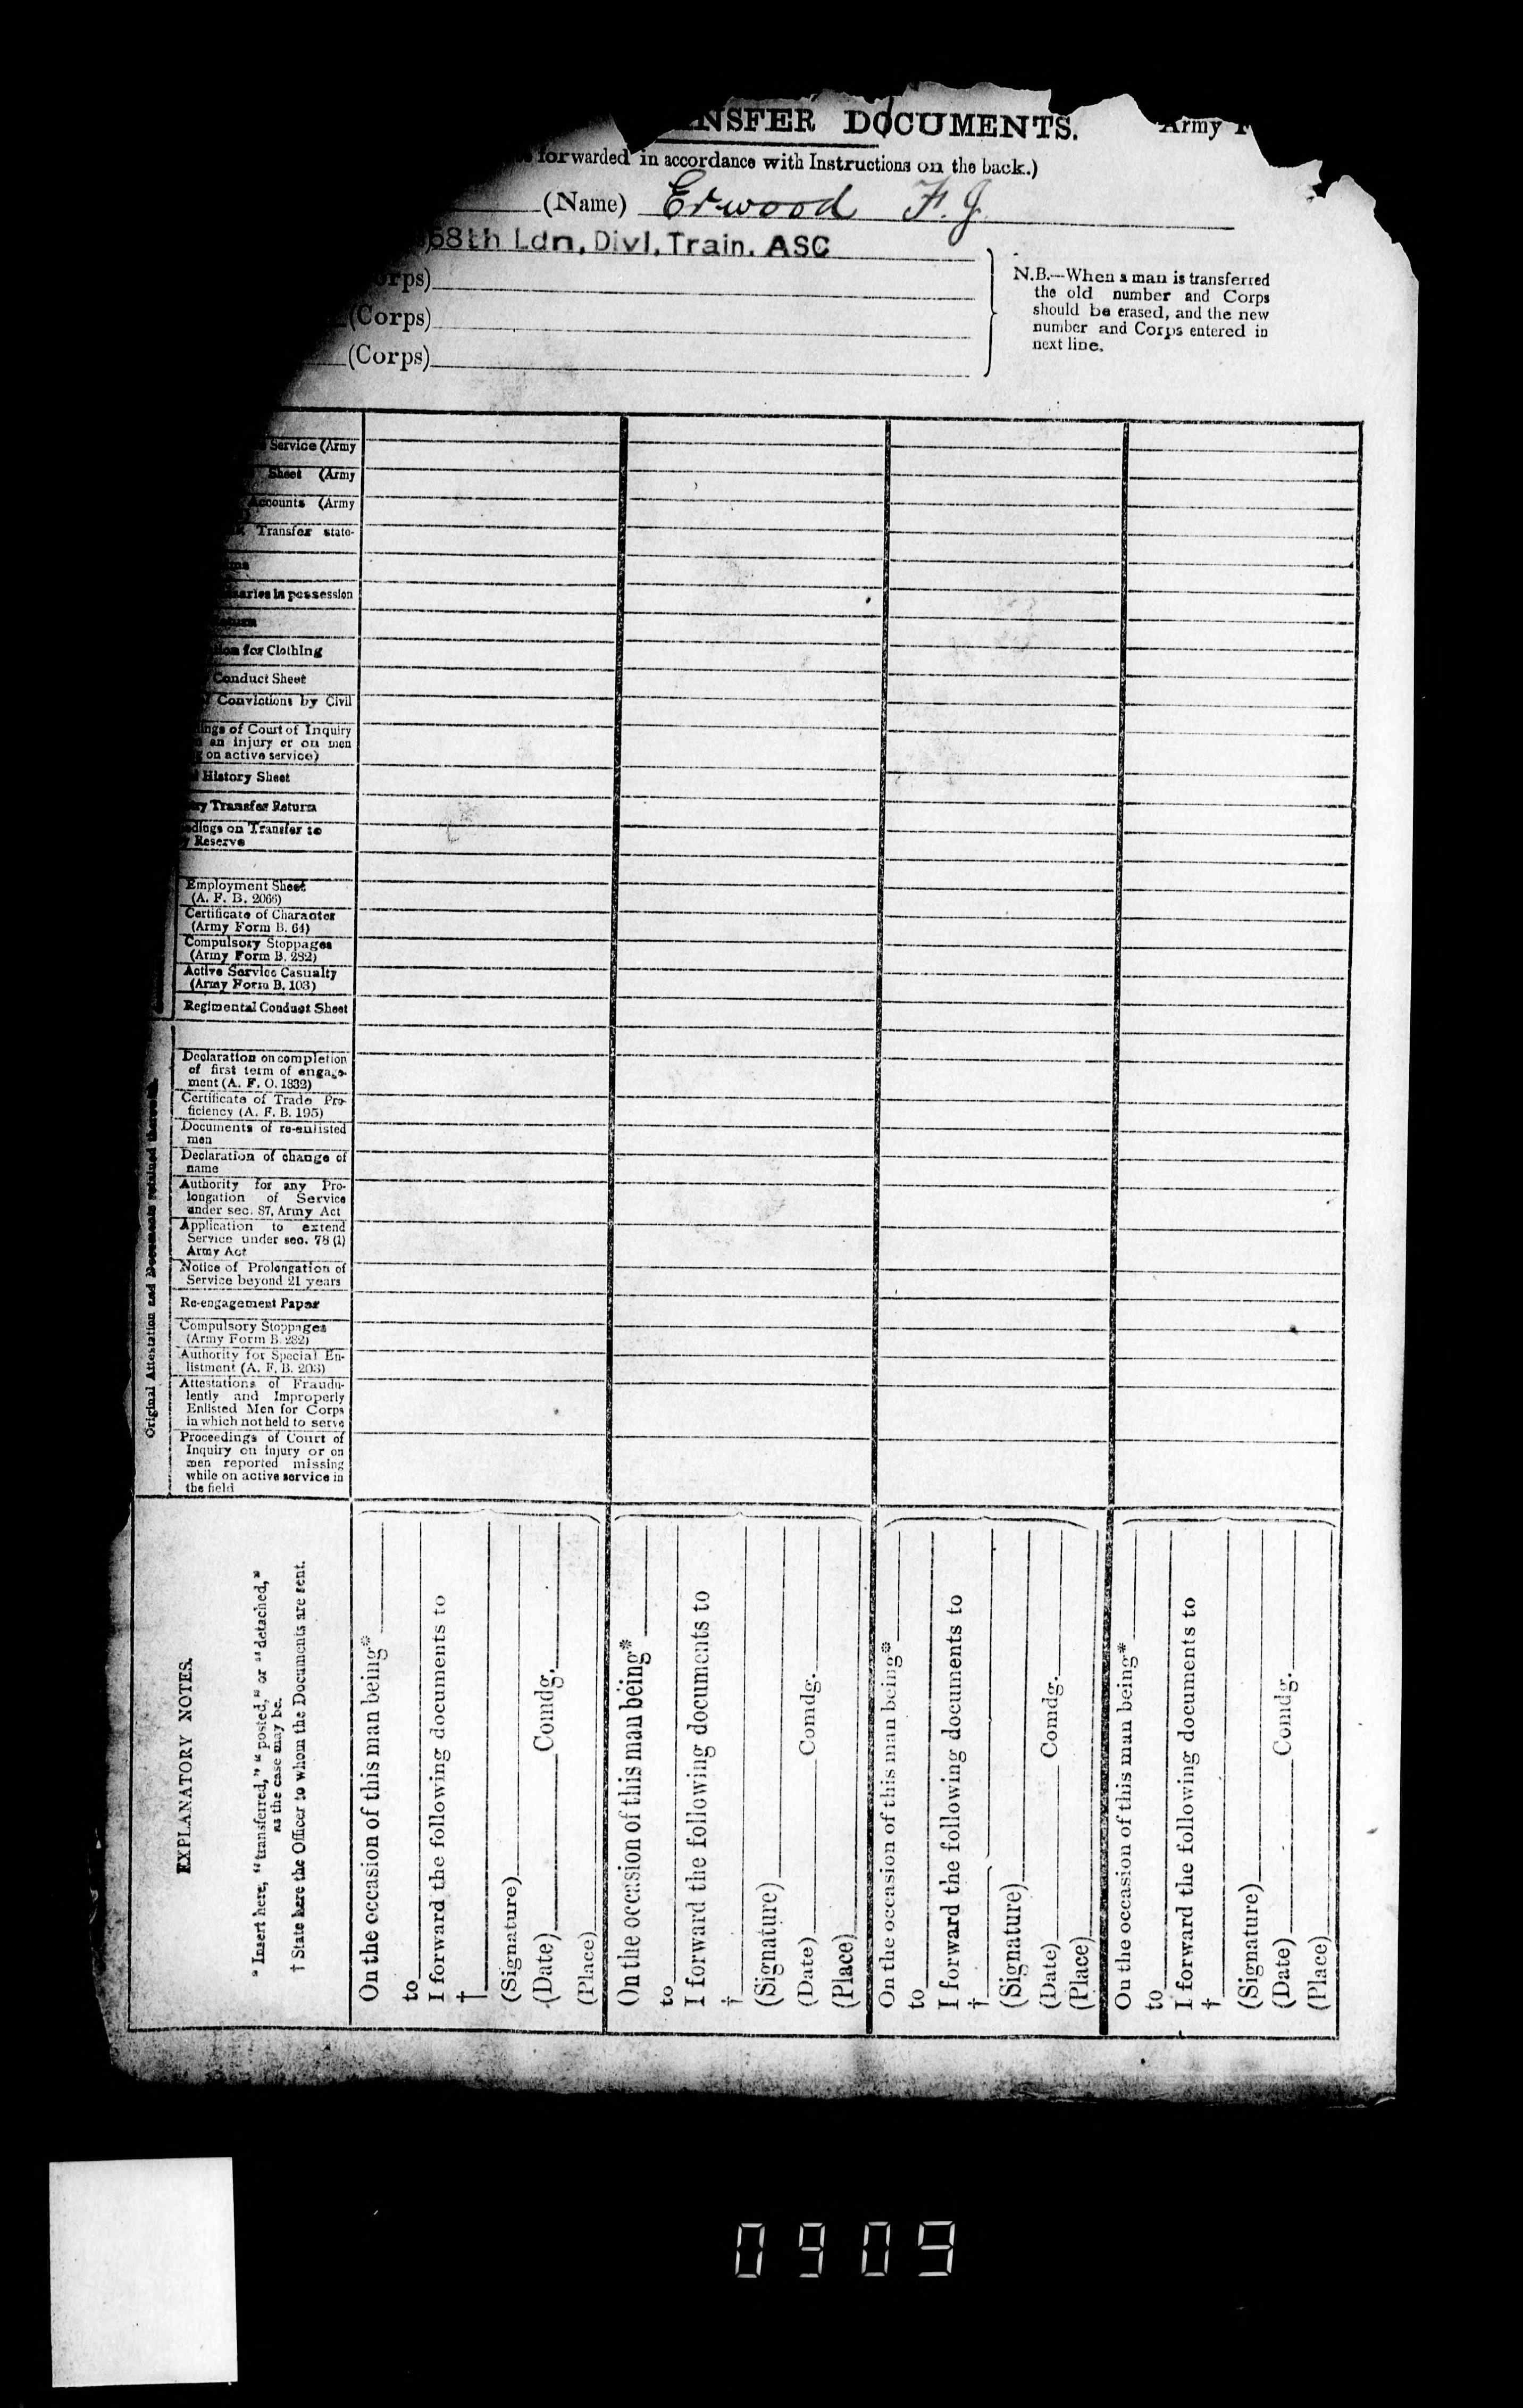 NSFER DOCUMENTS. Army
forwarded in accordance with Instructions on the back.)
(Name) Erwood F. J.
58th Ldn, Divl, Train. ASC
orps)
(Corps)
(Corps)
N.B.—When a man is transferred
the old number and Corps
should be erased, and the new
number and Corps entered in
next line.
Service (Army
Sheet (Army
Accounts (Army
Transfer state-
saries in possession
for Clothing
Conduct Sheet
Convictions by Civil
ings of Court of Inquiry
an injury or on men
on active service)
History Sheet
ry Transfer Return
edings on Transfer to
y Reserve
Employment Sheet
(A. F. B. 2066)
Certificate of Character
(Army Form B. 64)
Compulsory Stoppages
(Army Form B. 282)
Active Service Casualty
(Army Form B. 103)
Regimental Conduct Sheet
Original Attestation and Documents retained therewith.
Declaration on completion
of first term of engage-
ment (A. F. O. 1832)
Certificate of Trade Pro-
ficiency (A. F. B. 195)
Documents of re-enlisted
men
Declaration of change of
name
Authority for any Pro-
longation of Service
under sec. 87, Army Act
Application to extend
Service under sec. 78 (1)
Army Act
Notice of Prolongation of
Service beyond 21 years
Re-engagement Paper
Compulsory Stoppages
(Army Form B. 282)
Authority for Special En-
listment (A. F. B. 203)
Attestations of Fraudu-
lently and Improperly
Enlisted Men for Corps
in which not held to serve
Proceedings of Court of
Inquiry on injury or on
men reported missing
while on active service in
the field
EXPLANATORY NOTES.
* Insert here, "transferred," "posted," or "detached,"
as the case may be.
† State here the Officer to whom the Documents are sent.
On the occasion of this man being*
to
I forward the following documents to
†
(Signature)
(Date) Comdg.
(Place)
On the occasion of this man being*
to
I forward the following documents to
†
(Signature)
(Date) Comdg.
(Place)
On the occasion of this man being*
to
I forward the following documents to
†
(Signature)
(Date) Comdg.
(Place)
On the occasion of this man being*
to
I forward the following documents to
†
(Signature)
(Date) Comdg.
(Place)
0909